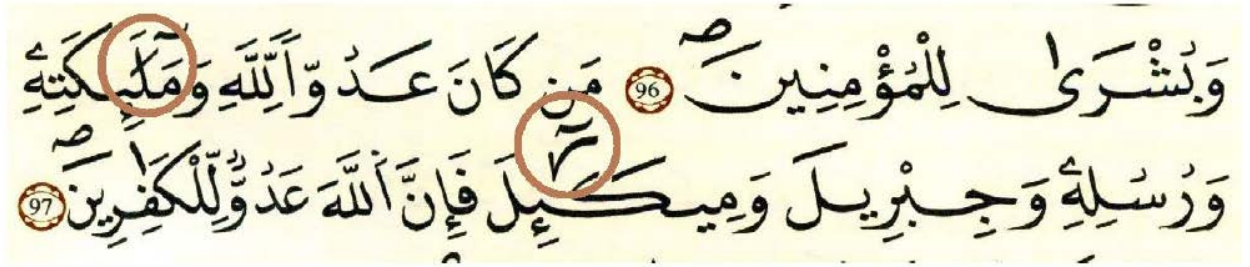 وَبُشْرَىٰ لِلْمُؤْمِنِينَ صه 96 مَن كَانَ عَدُوّاً لِّلَّهِ وَمَلَٰٓئِكَتِهِۦ
وَرُسُلِهِۦ وَجِبْرِيلَ وَمِيكَـٰٓئِلَ فَإِنَّ اَ۬للَّهَ عَدُوٌّ لِّلْكَٰفِرِينَ صه 97